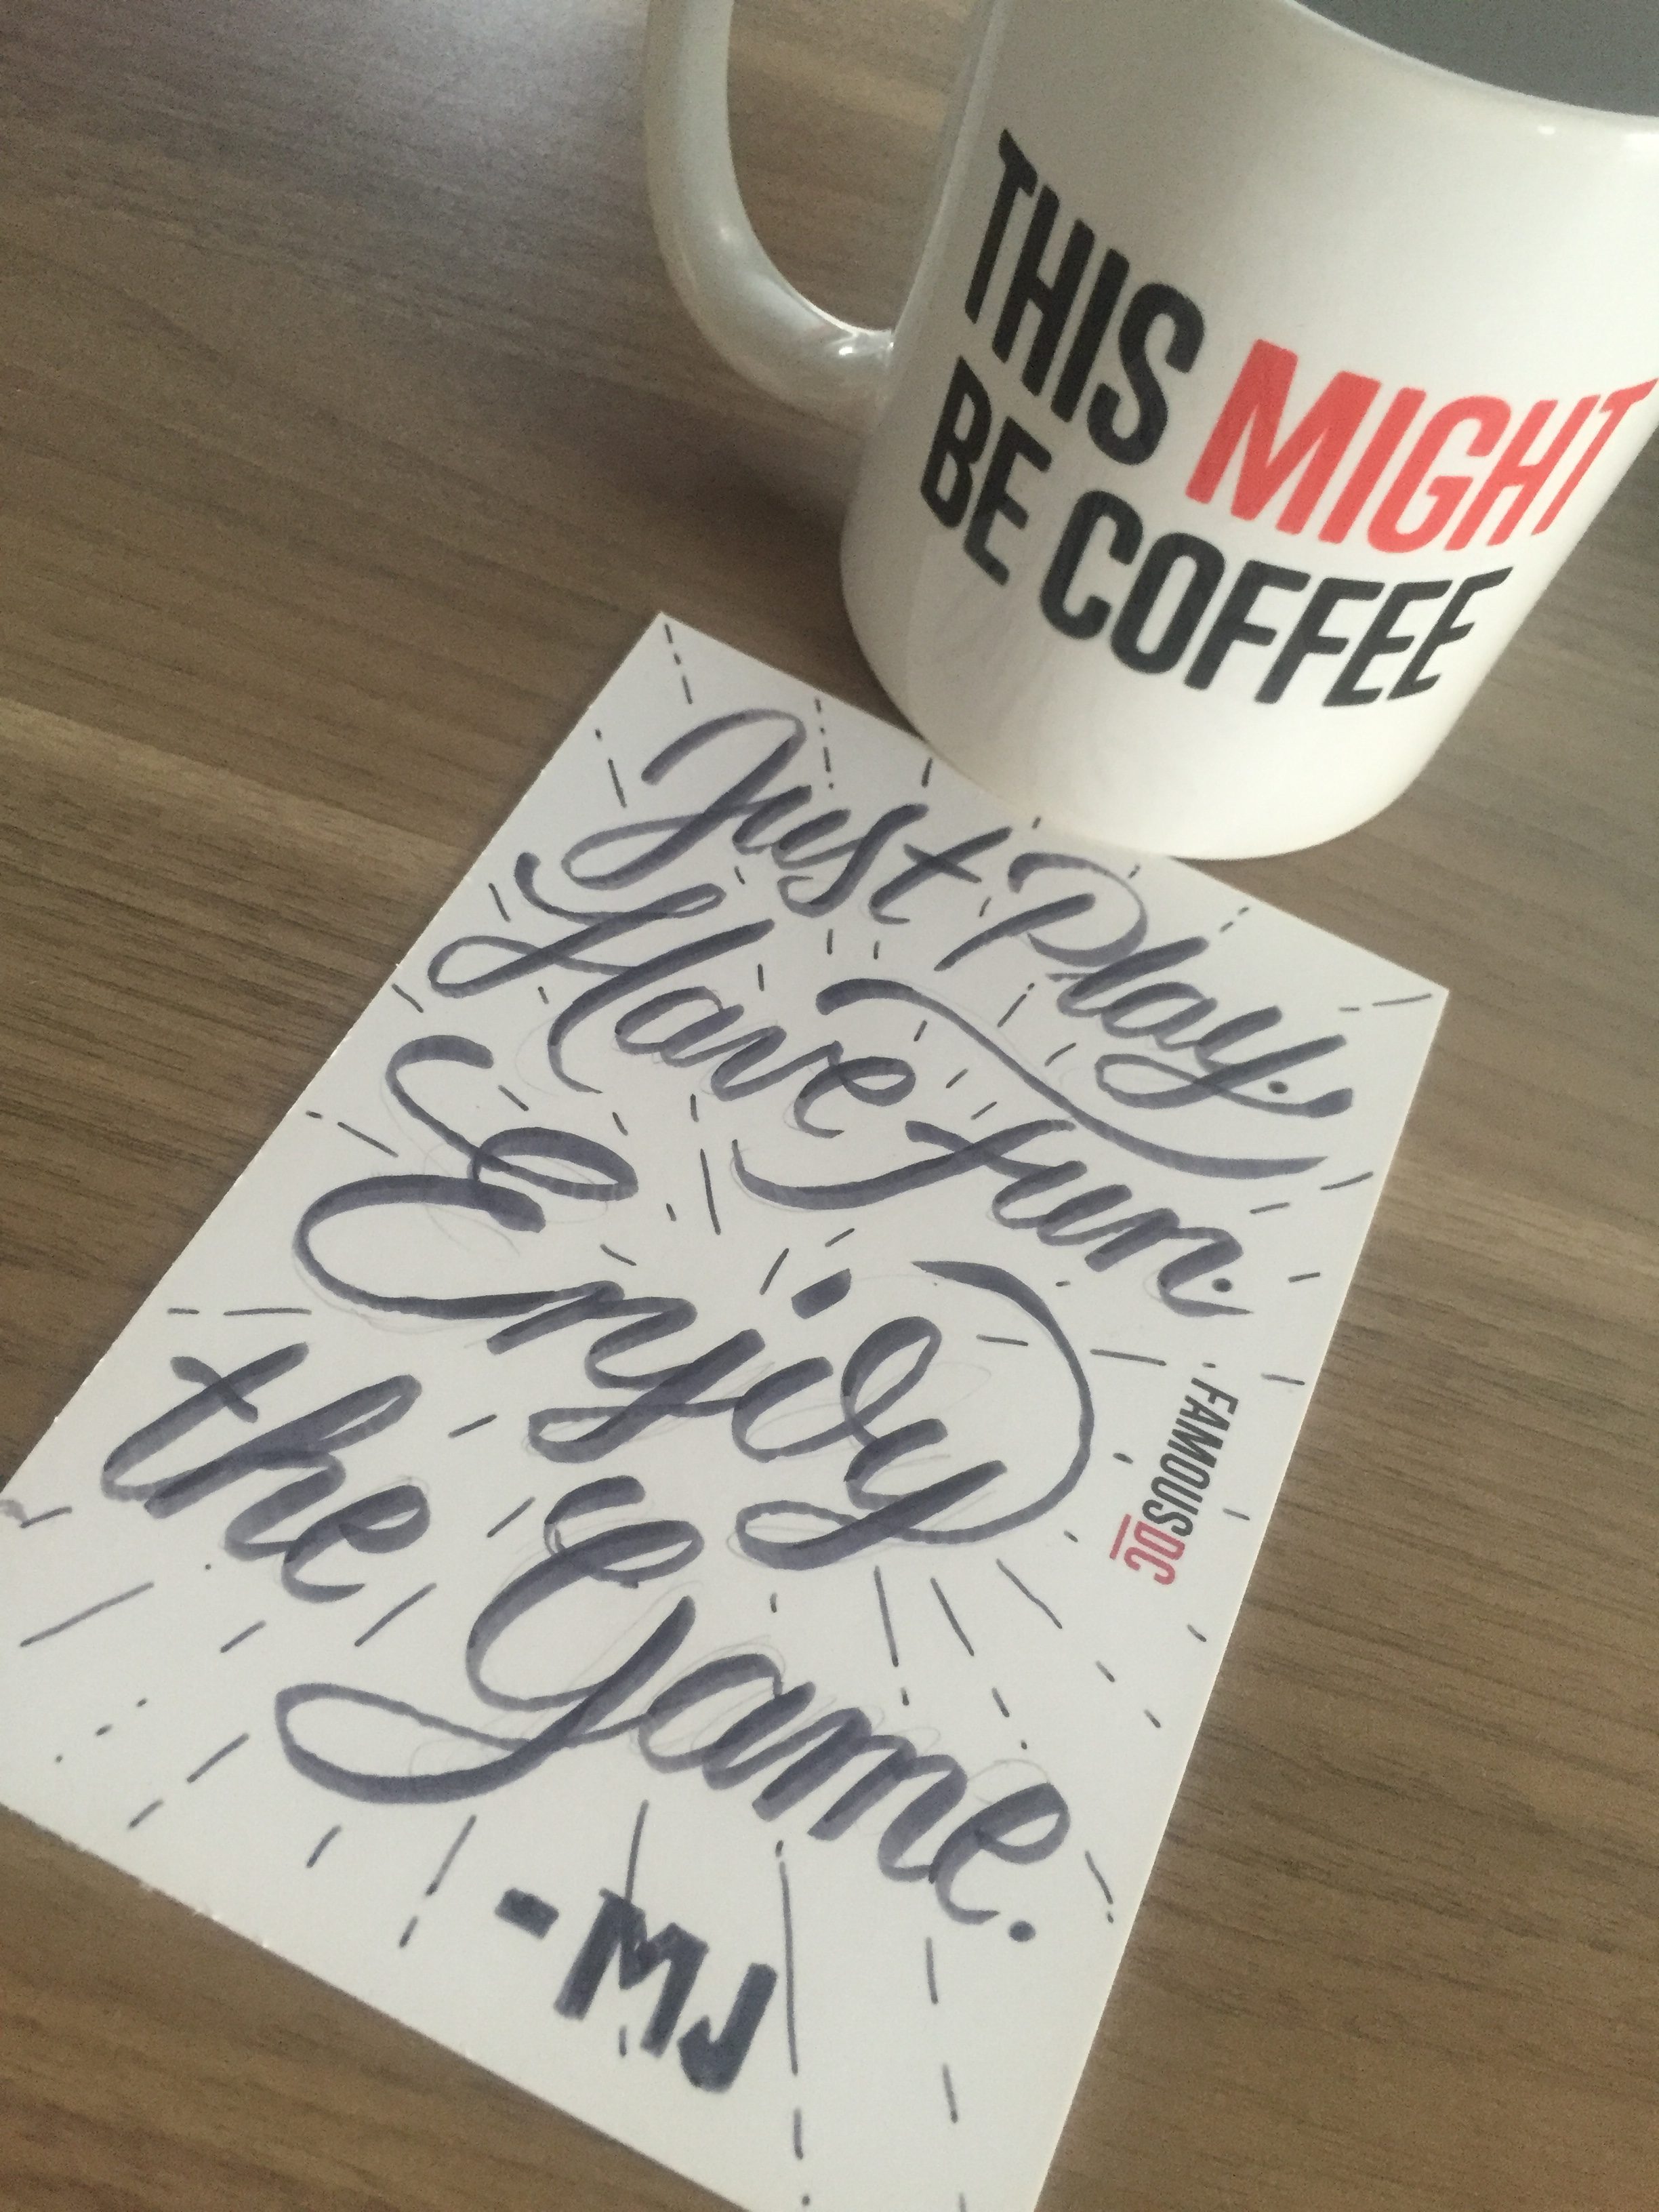 THIS MIGHT
BE COFFEE
Just Play.
Have fun.
Enjoy
the Game.
-MJ
FAMOUSDC